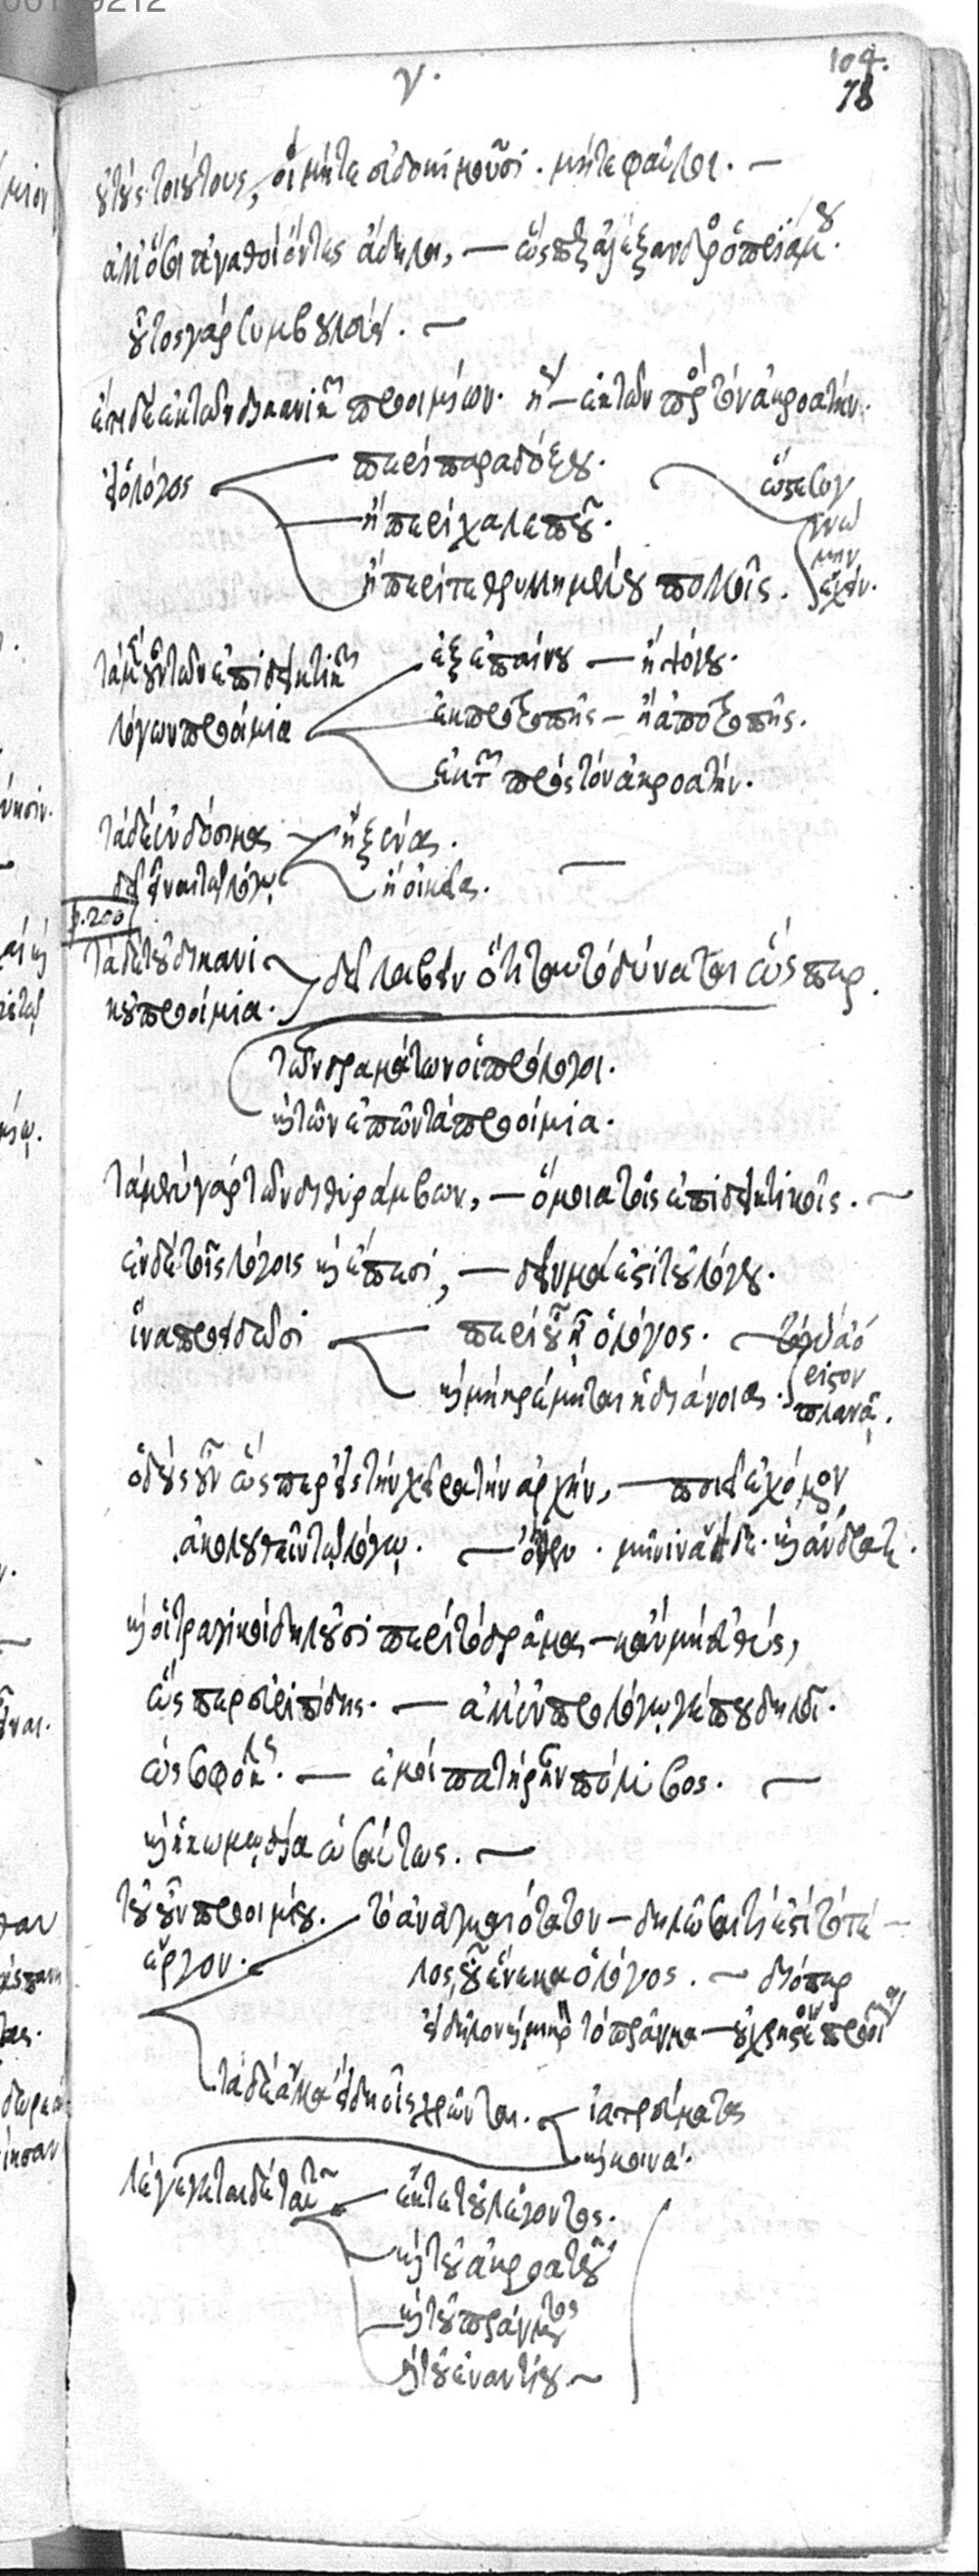 γ.
104.
78
οὕτως τοιούτους, οἳ μήτε εὐδοκιμοῦσι. μήτε φαῦλοι. —
ἀλλ' ὅσοι ἀγαθοὶ ὄντες ἄδηλοι, — ὥσπερ ἀλέξανδρος ὁ πριάμου.
οὗτος γὰρ συμβουλεύει. —
ἔτι δὲ ἐκ τῶν δικανικῶν προοιμίων. ἤ — ἐκ τῶν πρὸς τὸν ἀκροατήν.
εἰ ὁ λόγος
περὶ παραδόξου.
ἢ περὶ χαλεποῦ.
ἢ περὶ τεθρυλλημένου πολλοῖς.
ὥστε συγ
γνώ
μην
ἔχειν.
τὰ μὲν οὖν τῶν ἐπιδεικτικῶν
λόγων προοίμια
ἐξ ἐπαίνου — ἢ ψόγου.
ἐκ προτροπῆς — ἢ ἀποτροπῆς.
ἐκ τῶν πρὸς τὸν ἀκροατήν.
τὰ δὲ ἐνδόσιμα
δεῖ εἶναι τῷ λόγῳ
ἢ ξένα.
ἢ οἰκεῖα.
p.200
τὰ δὲ τοῦ δικανι
κοῦ προοίμια.
δεῖ λαβεῖν ὅτι ταυτὸ δύναται ὥσπερ.
τῶν δραμάτων οἱ πρόλογοι.
καὶ τῶν ἐπῶν τὰ προοίμια.
τὰ μὲν γὰρ τῶν διθυράμβων, — ὅμοια τοῖς ἐπιδεικτικοῖς. —
ἐν δὲ τοῖς λόγοις καὶ ἔπεσι, — δεῖγμά ἐστι τοῦ λόγου.
ἵνα προειδῶσι
περὶ οὗ ἦν ὁ λόγος.
καὶ μὴ κρέμηται ἡ διάνοια.
τὸ γὰρ ἀό
ριστον
πλανᾷ.
ὁ δοὺς οὖν ὥσπερ εἰς τὴν χεῖρα τὴν ἀρχήν, — ποιεῖ ἐχόμενον
ἀκολουθεῖν τῷ λόγῳ. — μῆνιν ἄειδε. καὶ ἄνδρα
καὶ οἱ τραγικοὶ δηλοῦσι περὶ τὸ δρᾶμα — κἂν μὴ εὐθύς,
ὥσπερ εὐριπίδης. — ἀλλ' ἐν προλόγῳ γέ που δηλοῖ.
ὡς σοφοκλῆς. — ἐμοὶ πατὴρ ἦν πόλυβος. —
καὶ ἡ κωμῳδία ὡσαύτως. —
τοῦ οὖν προοιμίου.
ἔργον.
τὸ ἀναγκαιότατον — δηλῶσαι τί ἐστι τὸ τέ-
λος, οὗ ἕνεκα ὁ λόγος. — διόπερ
ἂν δῆλον ᾖ καὶ μικρὸν τὸ πρᾶγμα — οὐ χρηστέον προοιμίῳ
τὰ δὲ ἄλλα εἴδη οἷς χρῶνται.
ἰατρεύματα
καὶ κοινά.
λέγεται δὲ ταῦτα
ἔκ τε τοῦ λέγοντος.
καὶ τοῦ ἀκροατοῦ
καὶ τοῦ πράγματος
καὶ τοῦ ἐναντίου ~